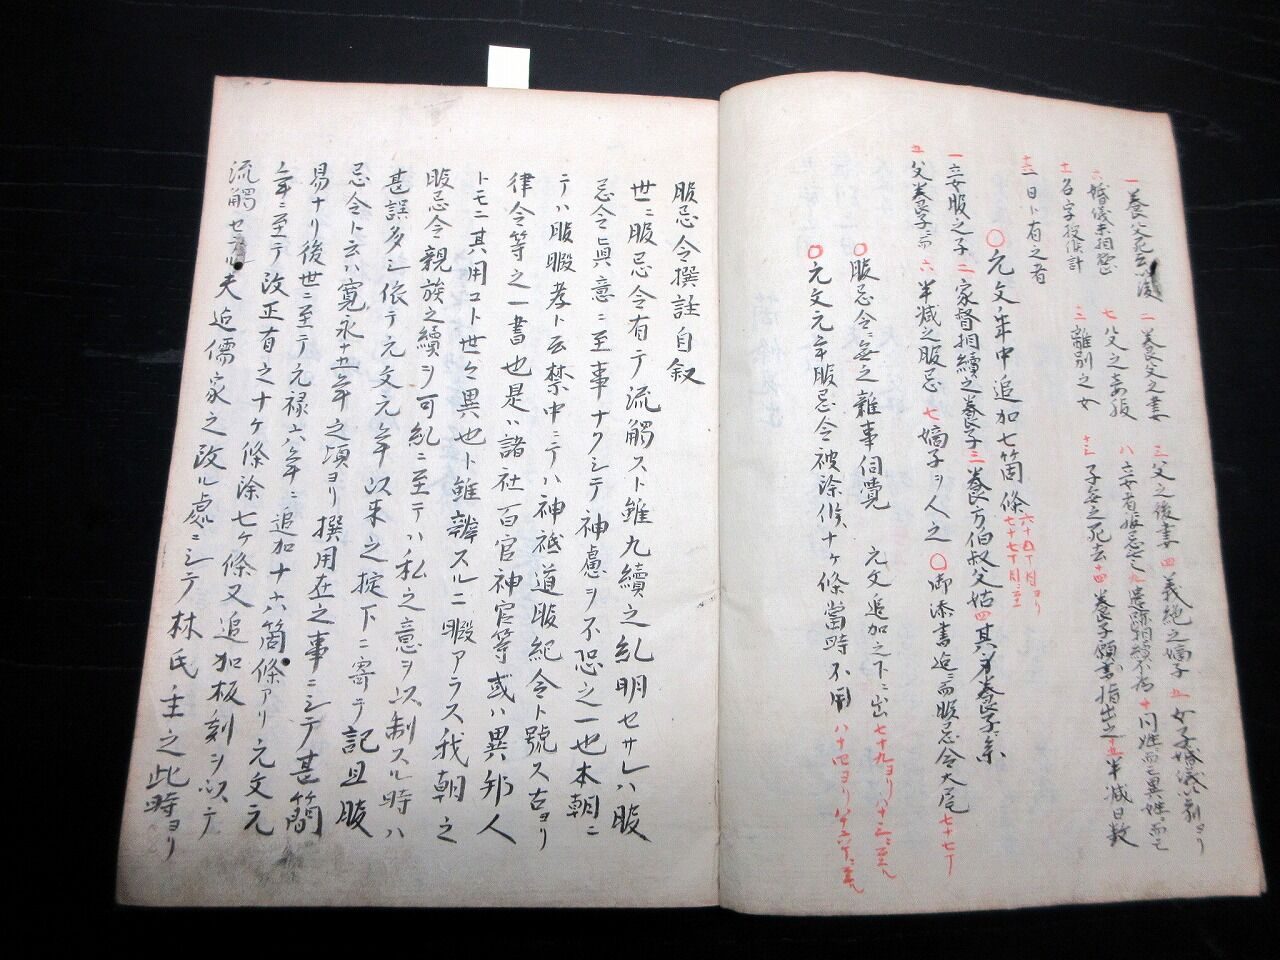 一養父死去以後 二養父之妻 三父之後妻 四義絶之嫡子 五女子婚儀以前ヨリ
六婚儀未相整 七父之妾服 八妾者服忌無之 九遺跡相続不為 十同姓ニ而モ異姓ニ而モ
十一名字授候計 三離別之女 十三子無之死去 十四養子願書指出之 十五半減日数
十二一日ト有之者
〇元文年中追加七箇條 六十四丁目ヨリ七十七丁目ニ至
一妾服之子 二家督相續之養子 三養方伯叔父姑 四其身養子系
五父養子ニ而 六半減之服忌 七嫡子ヲ人之 〇御添書迄ニ而服忌令大尾 七十七丁
〇服忌令ニ無之雑事伺覺 元文追加之下ニ出 七十九ヨリ八十三ニ至ル
〇元文元年服忌令被除候十ヶ條當時不用 八十四ヨリ八十六丁ニ至ル
服忌令撰註自叙
世ニ服忌令有テ流觸スト雖九續之糺明セサレハ服
忌令眞意ニ至事ナクシテ神慮ヲ不恐之一也本朝ニ
テハ服暇孝ト云禁中ニテハ神祇道服紀令ト號ス古ヨリ
律令等之一書也是ハ諸社百官神官等或ハ異邦人
トモニ其用コト世々異也ト雖辨スルニ暇アラス我朝之
服忌令親族之續ヲ可糺ニ至テハ私之意ヲ以制スル時ハ
甚誤多シ依テ元文元年以来之掟下ニ寄テ記且服
忌令ト云ハ寛永十五年之頃ヨリ撰用在之事ニシテ甚簡
易ナリ後世ニ至テ元禄六年ニ追加十六箇條アリ元文元
年ニ至テ改正有之十ヶ條除七ヶ條又追加板刻ヲ以テ
流觸セラル夫迄儒家之改ル處ニシテ林氏主之此時ヨリ